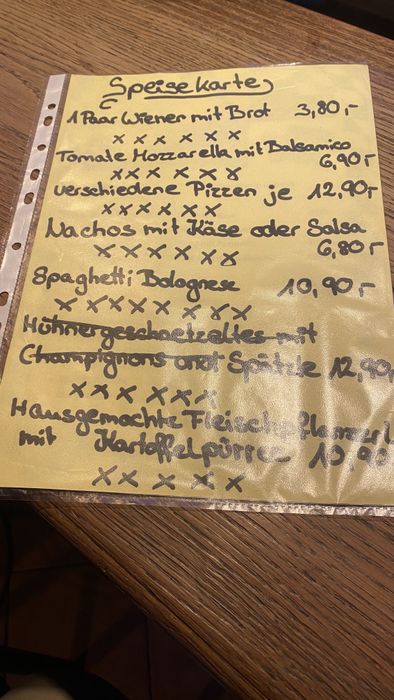 Speisekarte
1 Paar Wiener mit Brot 3,80,-
x x x x x x
Tomate Mozzarella mit Balsamico
6,90,-
x x x x x x
verschiedene Pizzen je 12,90,-
x x x x x x
Nachos mit Käse oder Salsa
6,80,-
x x x x x x
Spaghetti Bolognese 10,90,-
x x x x x x x x
Hühnergeschnetzeltes mit
Champignons und Spätzle 12,90,
x x x x x x
Hausgemachte Fleischpflanzerl
mit Kartoffelpürree 10,90
x x x x x